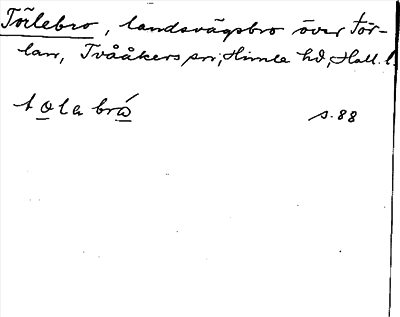 Törlebro, landsvägsbro över Tör-
lan, Tvååkers sn; Himle hd, Hall. l.
tola brå s. 88